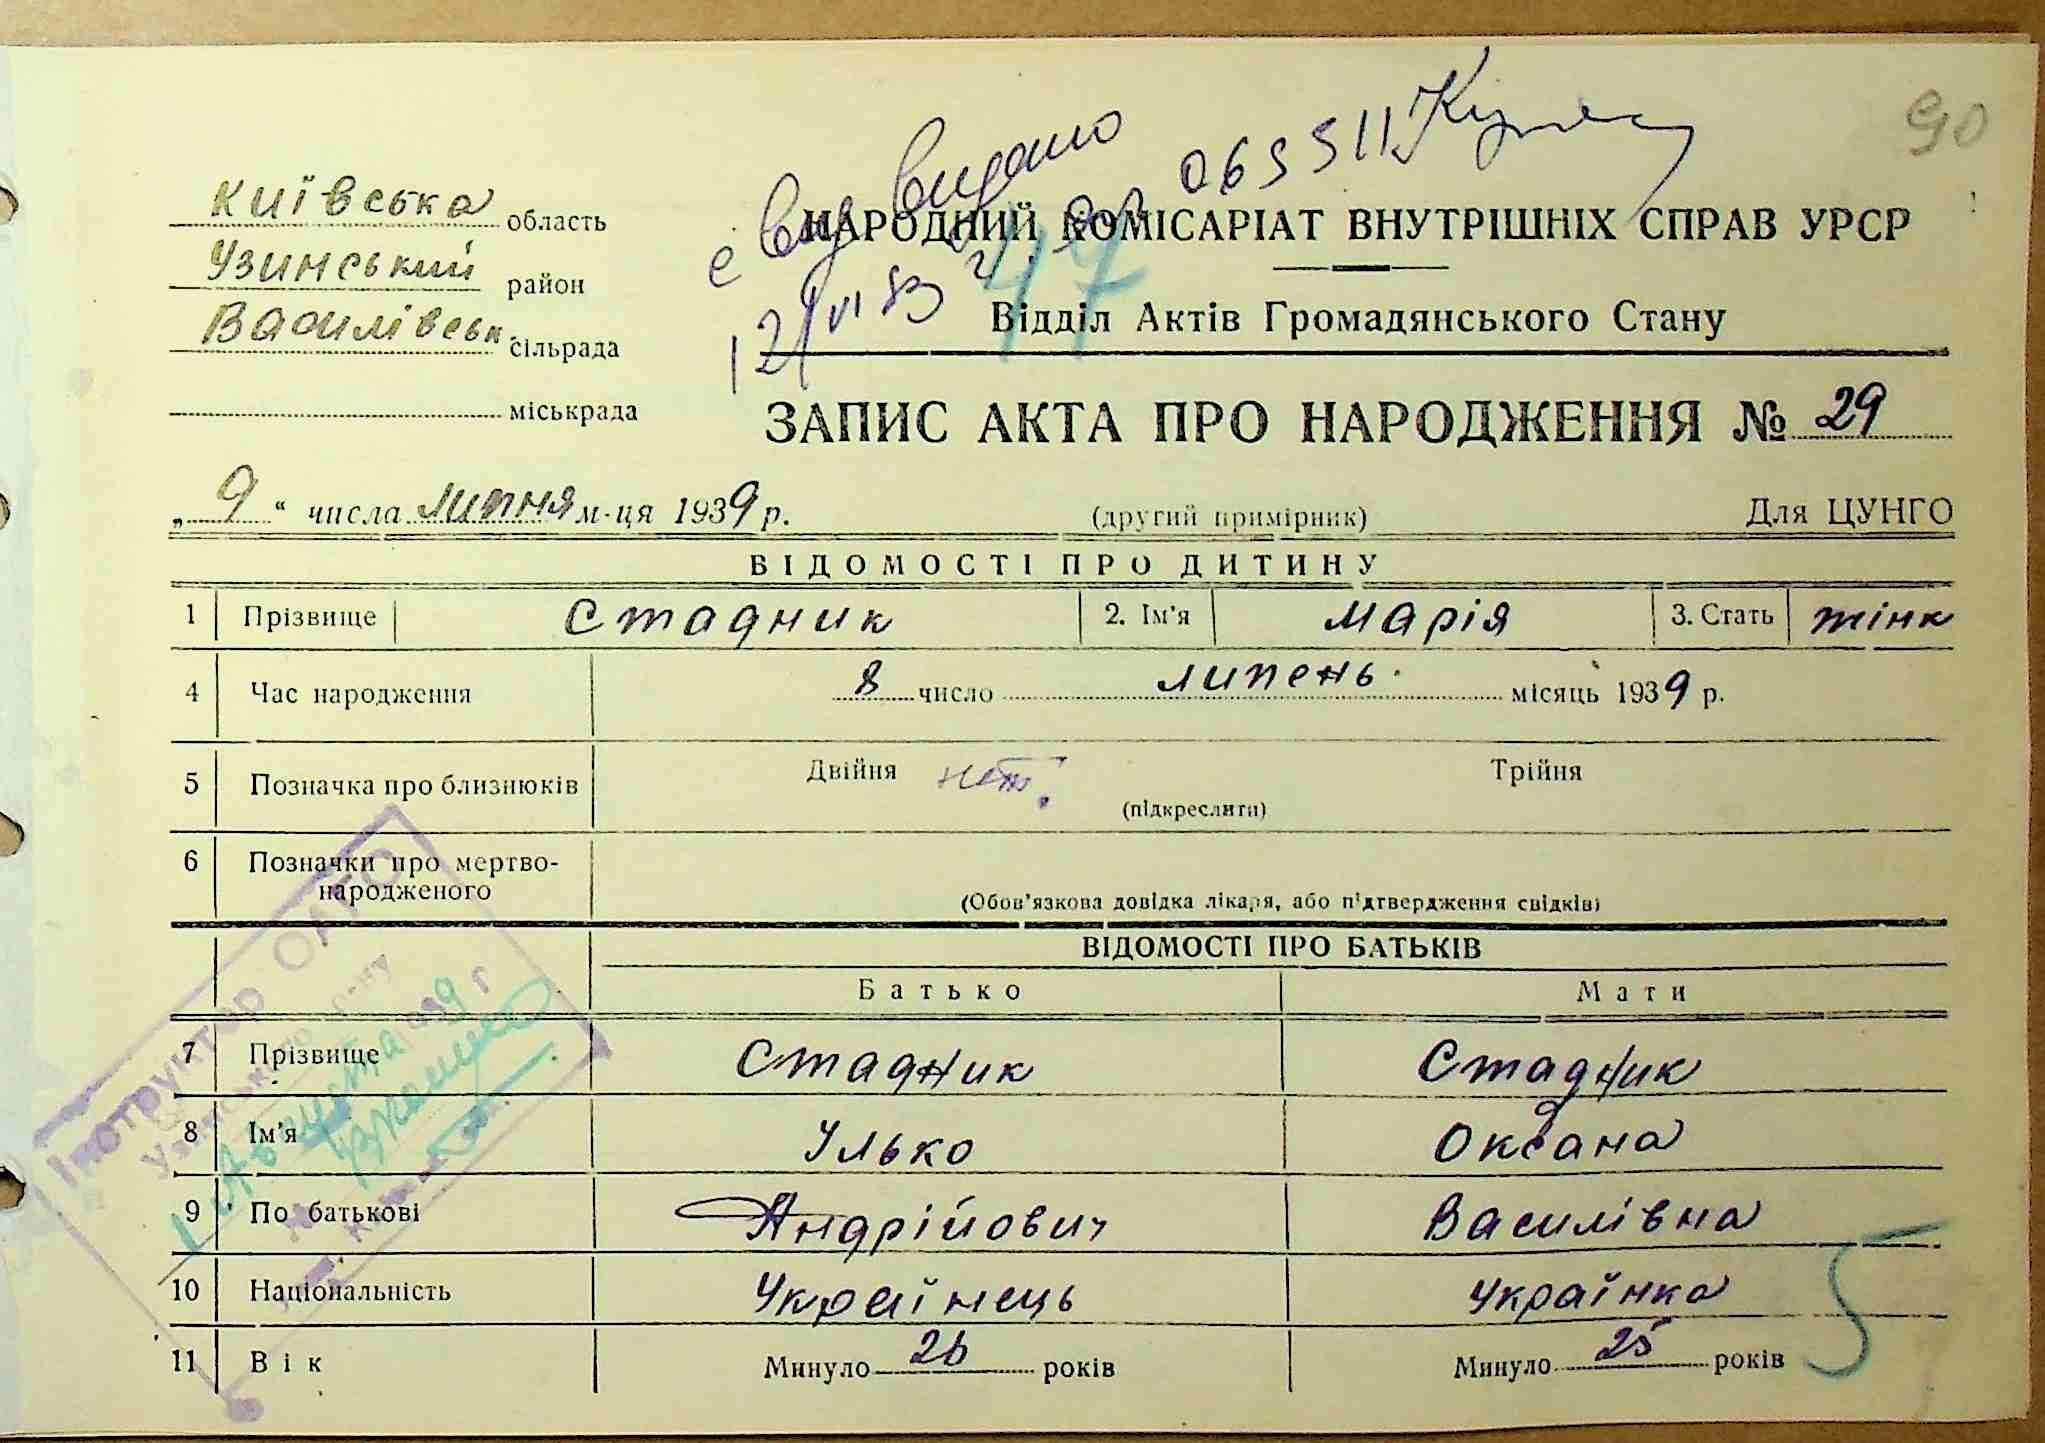 90
Київська область
Узинський район
Василівськ. сільрада
міськрада
видано
063511
12/VI 83
47
НАРОДНИЙ КОМІСАРІАТ ВНУТРІШНІХ СПРАВ УРСР
Відділ Актів Громадянського Стану
ЗАПИС АКТА ПРО НАРОДЖЕННЯ № 29
„9“ числа липня м-ця 1939 р. (другий примірник) Для ЦУНГО
ВІДОМОСТІ ПРО ДИТИНУ
1 Прізвище Стадник 2. Ім'я Марія 3. Стать жінк
4 Час народження 8 число липень місяць 1939 р.
5 Позначка про близнюків Двійня нет. Трійня
(підкреслити)
6 Позначки про мертво-
народженого
(Обов'язкова довідка лікаря, або підтвердження свідків)
ВІДОМОСТІ ПРО БАТЬКІВ
Батько Мати
7 Прізвище Стадник Стадник
8 Ім'я Улько Оксана
9 По батькові Андрійович Василівна
10 Національність Українець Українка
11 Вік Минуло 26 років Минуло 25 років
5
Інструктор ОАГС